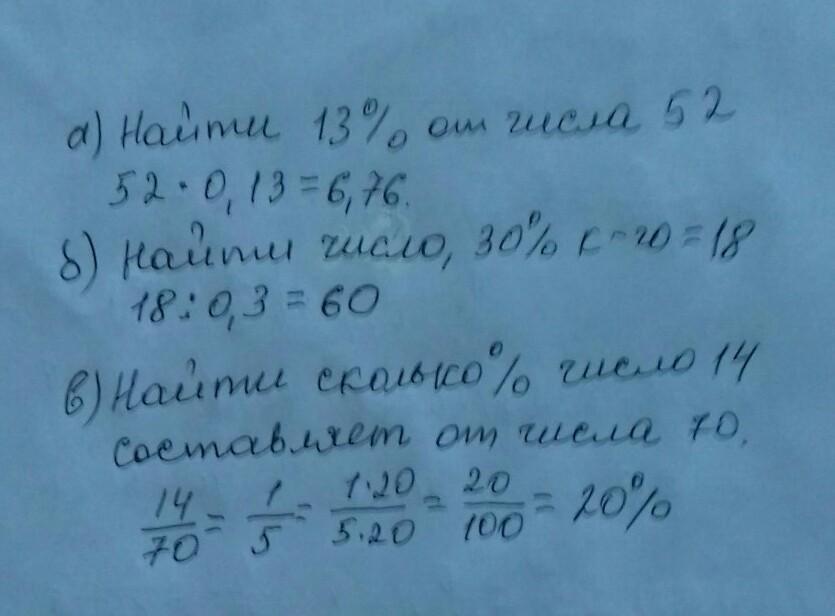 а) Найти 13% от числа 52
52 · 0,13 = 6,76.
б) Найти число, 30% к-го = 18
18 : 0,3 = 60
в) Найти сколько % число 14
составляет от числа 70.
14/70 = 1/5 = 1·20/5·20 = 20/100 = 20%